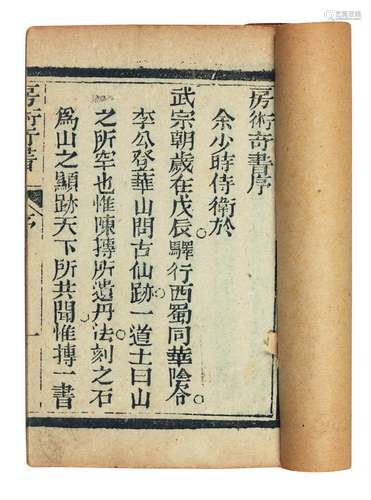 房術奇書序
余少時侍衛於
武宗朝歲在戊辰驛行西蜀同華陰令
李公登華山問古仙跡一道士曰山
之所罕也惟陳摶所遺丹法刻之石
為山之顯跡天下所共聞惟摶一書
房術奇書
序
一